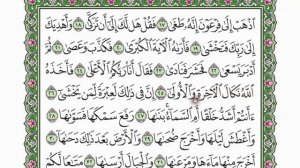 ٱذۡهَبۡ إِلَىٰ فِرۡعَوۡنَ إِنَّهُۥ طَغَىٰ ١٧ فَقُلۡ هَل لَّكَ إِلَىٰٓ أَن تَزَكَّىٰ ١٨ وَأَهۡدِيَكَ
إِلَىٰ رَبِّكَ فَتَخۡشَىٰ ١٩ فَأَرَىٰهُ ٱلۡأٓيَةَ ٱلۡكُبۡرَىٰ ٢٠ فَكَذَّبَ وَعَصَىٰ ٢١ ثُمَّ
أَدۡبَرَ يَسۡعَىٰ ٢٢ فَحَشَرَ فَنَادَىٰ ٢٣ فَقَالَ أَنَا۠ رَبُّكُمُ ٱلۡأَعۡلَىٰ ٢٤ فَأَخَذَهُ
ٱللَّهُ نَكَالَ ٱلۡأٓخِرَةِ وَٱلۡأُولَىٰٓ ٢٥ إِنَّ فِي ذَٰلِكَ لَعِبۡرَةٗ لِّمَن يَخۡشَىٰٓ ٢٦
ءَأَنتُمۡ أَشَدُّ خَلۡقًا أَمِ ٱلسَّمَآءُۚ بَنَىٰهَا ٢٧ رَفَعَ سَمۡكَهَا فَسَوَّىٰهَا ٢٨
وَأَغۡطَشَ لَيۡلَهَا وَأَخۡرَجَ ضُحَىٰهَا ٢٩ وَٱلۡأَرۡضَ بَعۡدَ ذَٰلِكَ دَحَىٰهَآ ٣٠
أَخۡرَجَ مِنۡهَا مَآءَهَا وَمَرۡعَىٰهَا ٣١ وَٱلۡجِبَالَ أَرۡسَىٰهَا ٣٢ مَتَٰعٗا لَّكُمۡ